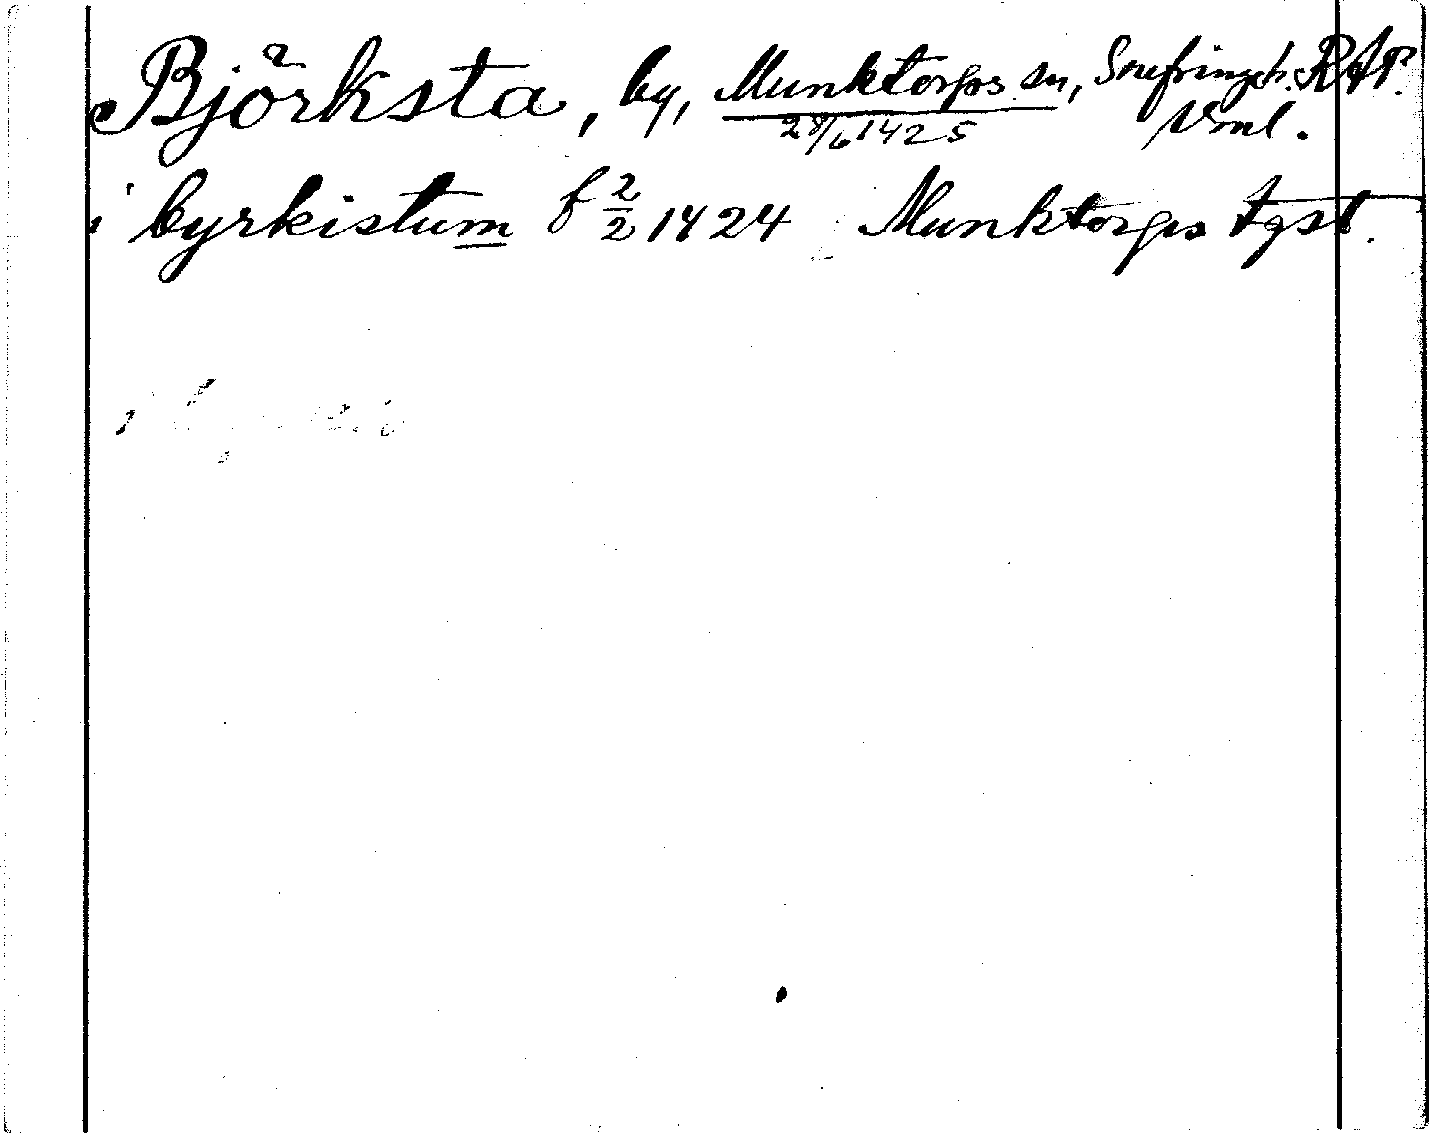 Björksta, by, Munktorps sn, Snefringe h. RAP.
28/6 1425 Vml.
i byrkistum f 2/2 1424 Munktorps tgst.